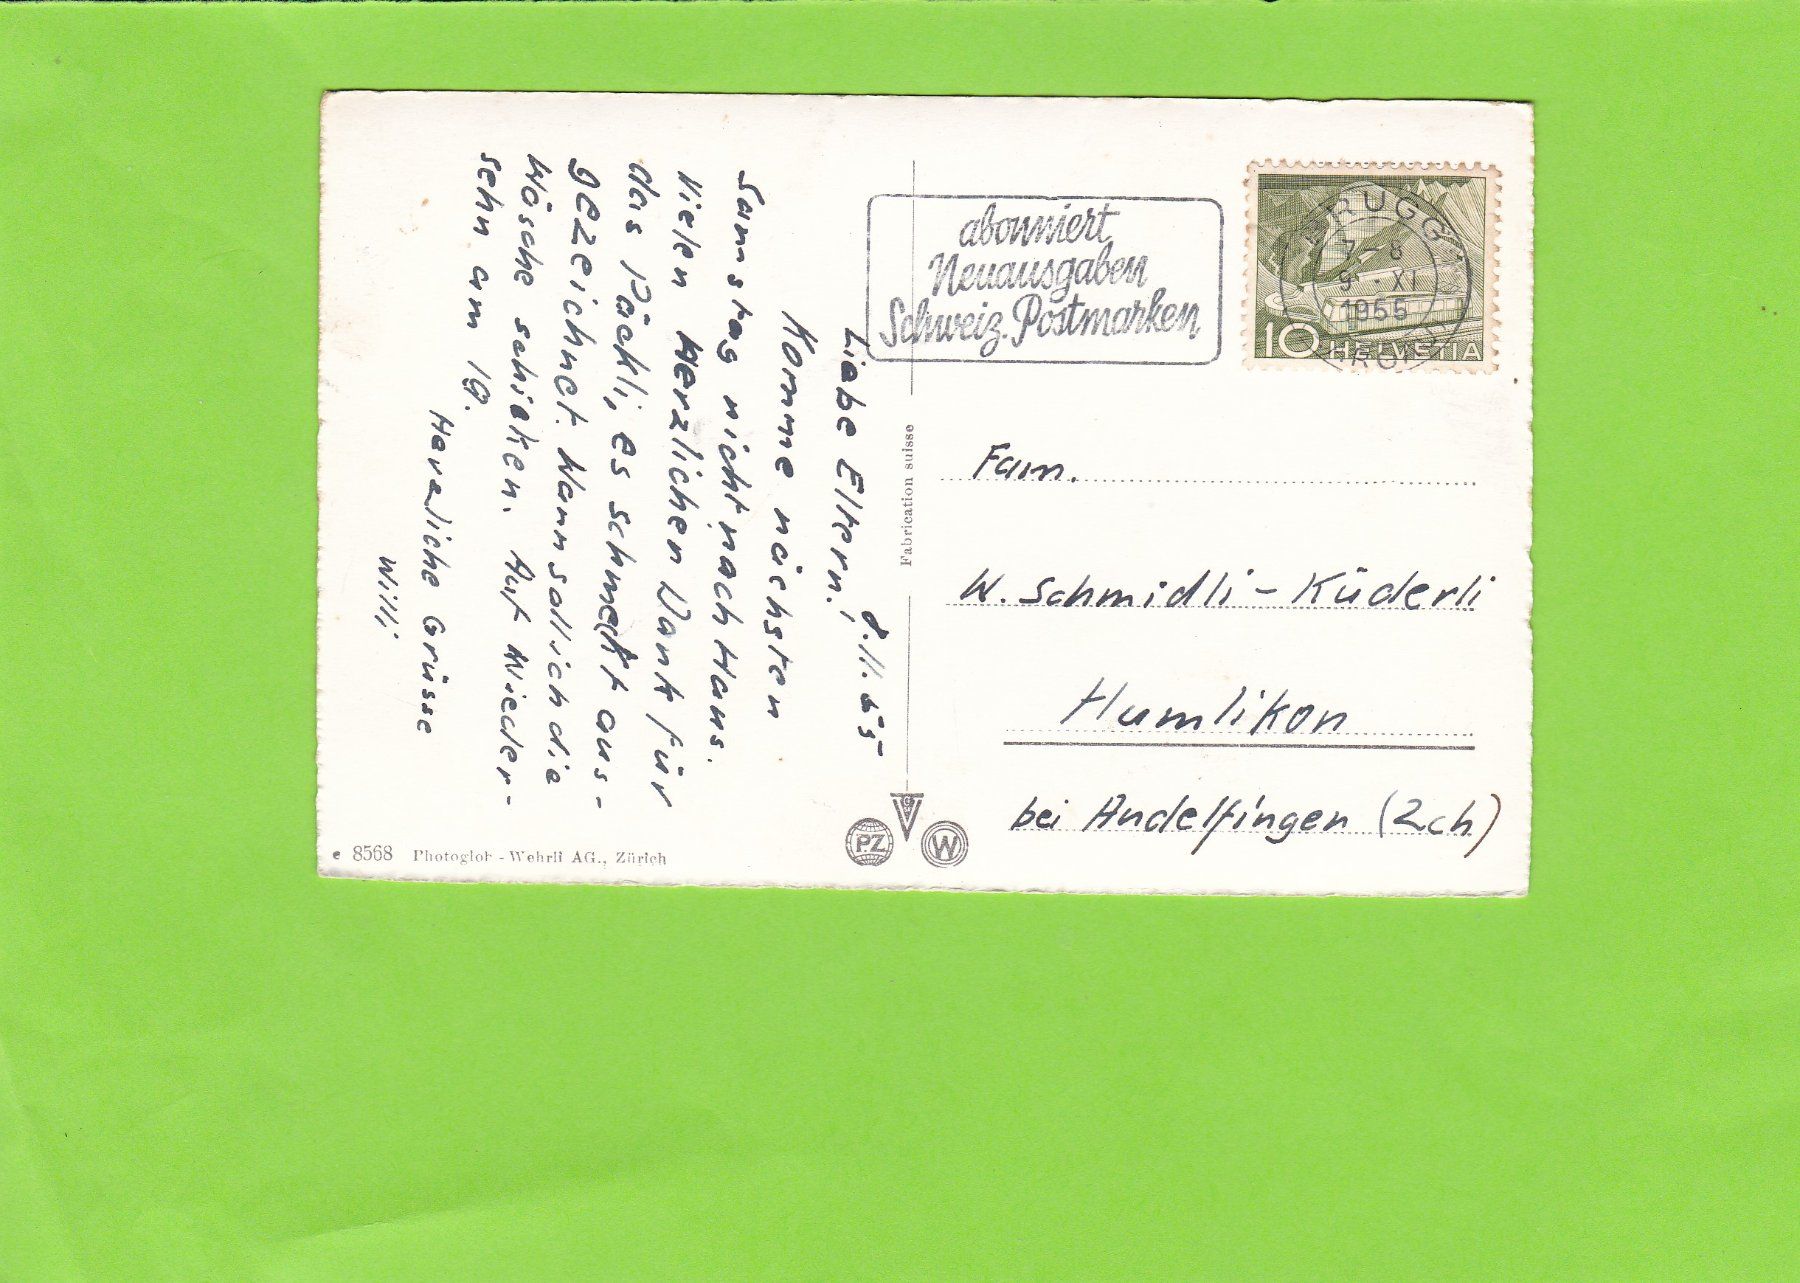 8.11.55
Liebe Eltern!
Komme nächsten
Samstag nicht nach Haus.
Vielen Herzlichen Dank für
das Päckli, es schmeckt aus-
gezeichnet. Wann soll ich die
Wäsche schicken. Auf Wieder-
sehn am 19.
Herzliche Grüsse
Willi
e 8568 Photoglob - Wehrli AG., Zürich
Fabrication suisse
PZ
W
abonniert
Neuausgaben
Schweiz. Postmarken
BRUGG
9. XI
1955
10 HELVETIA
Fam.
W. Schmidli - Küderli
Humlikon
bei Andelfingen (Zch)